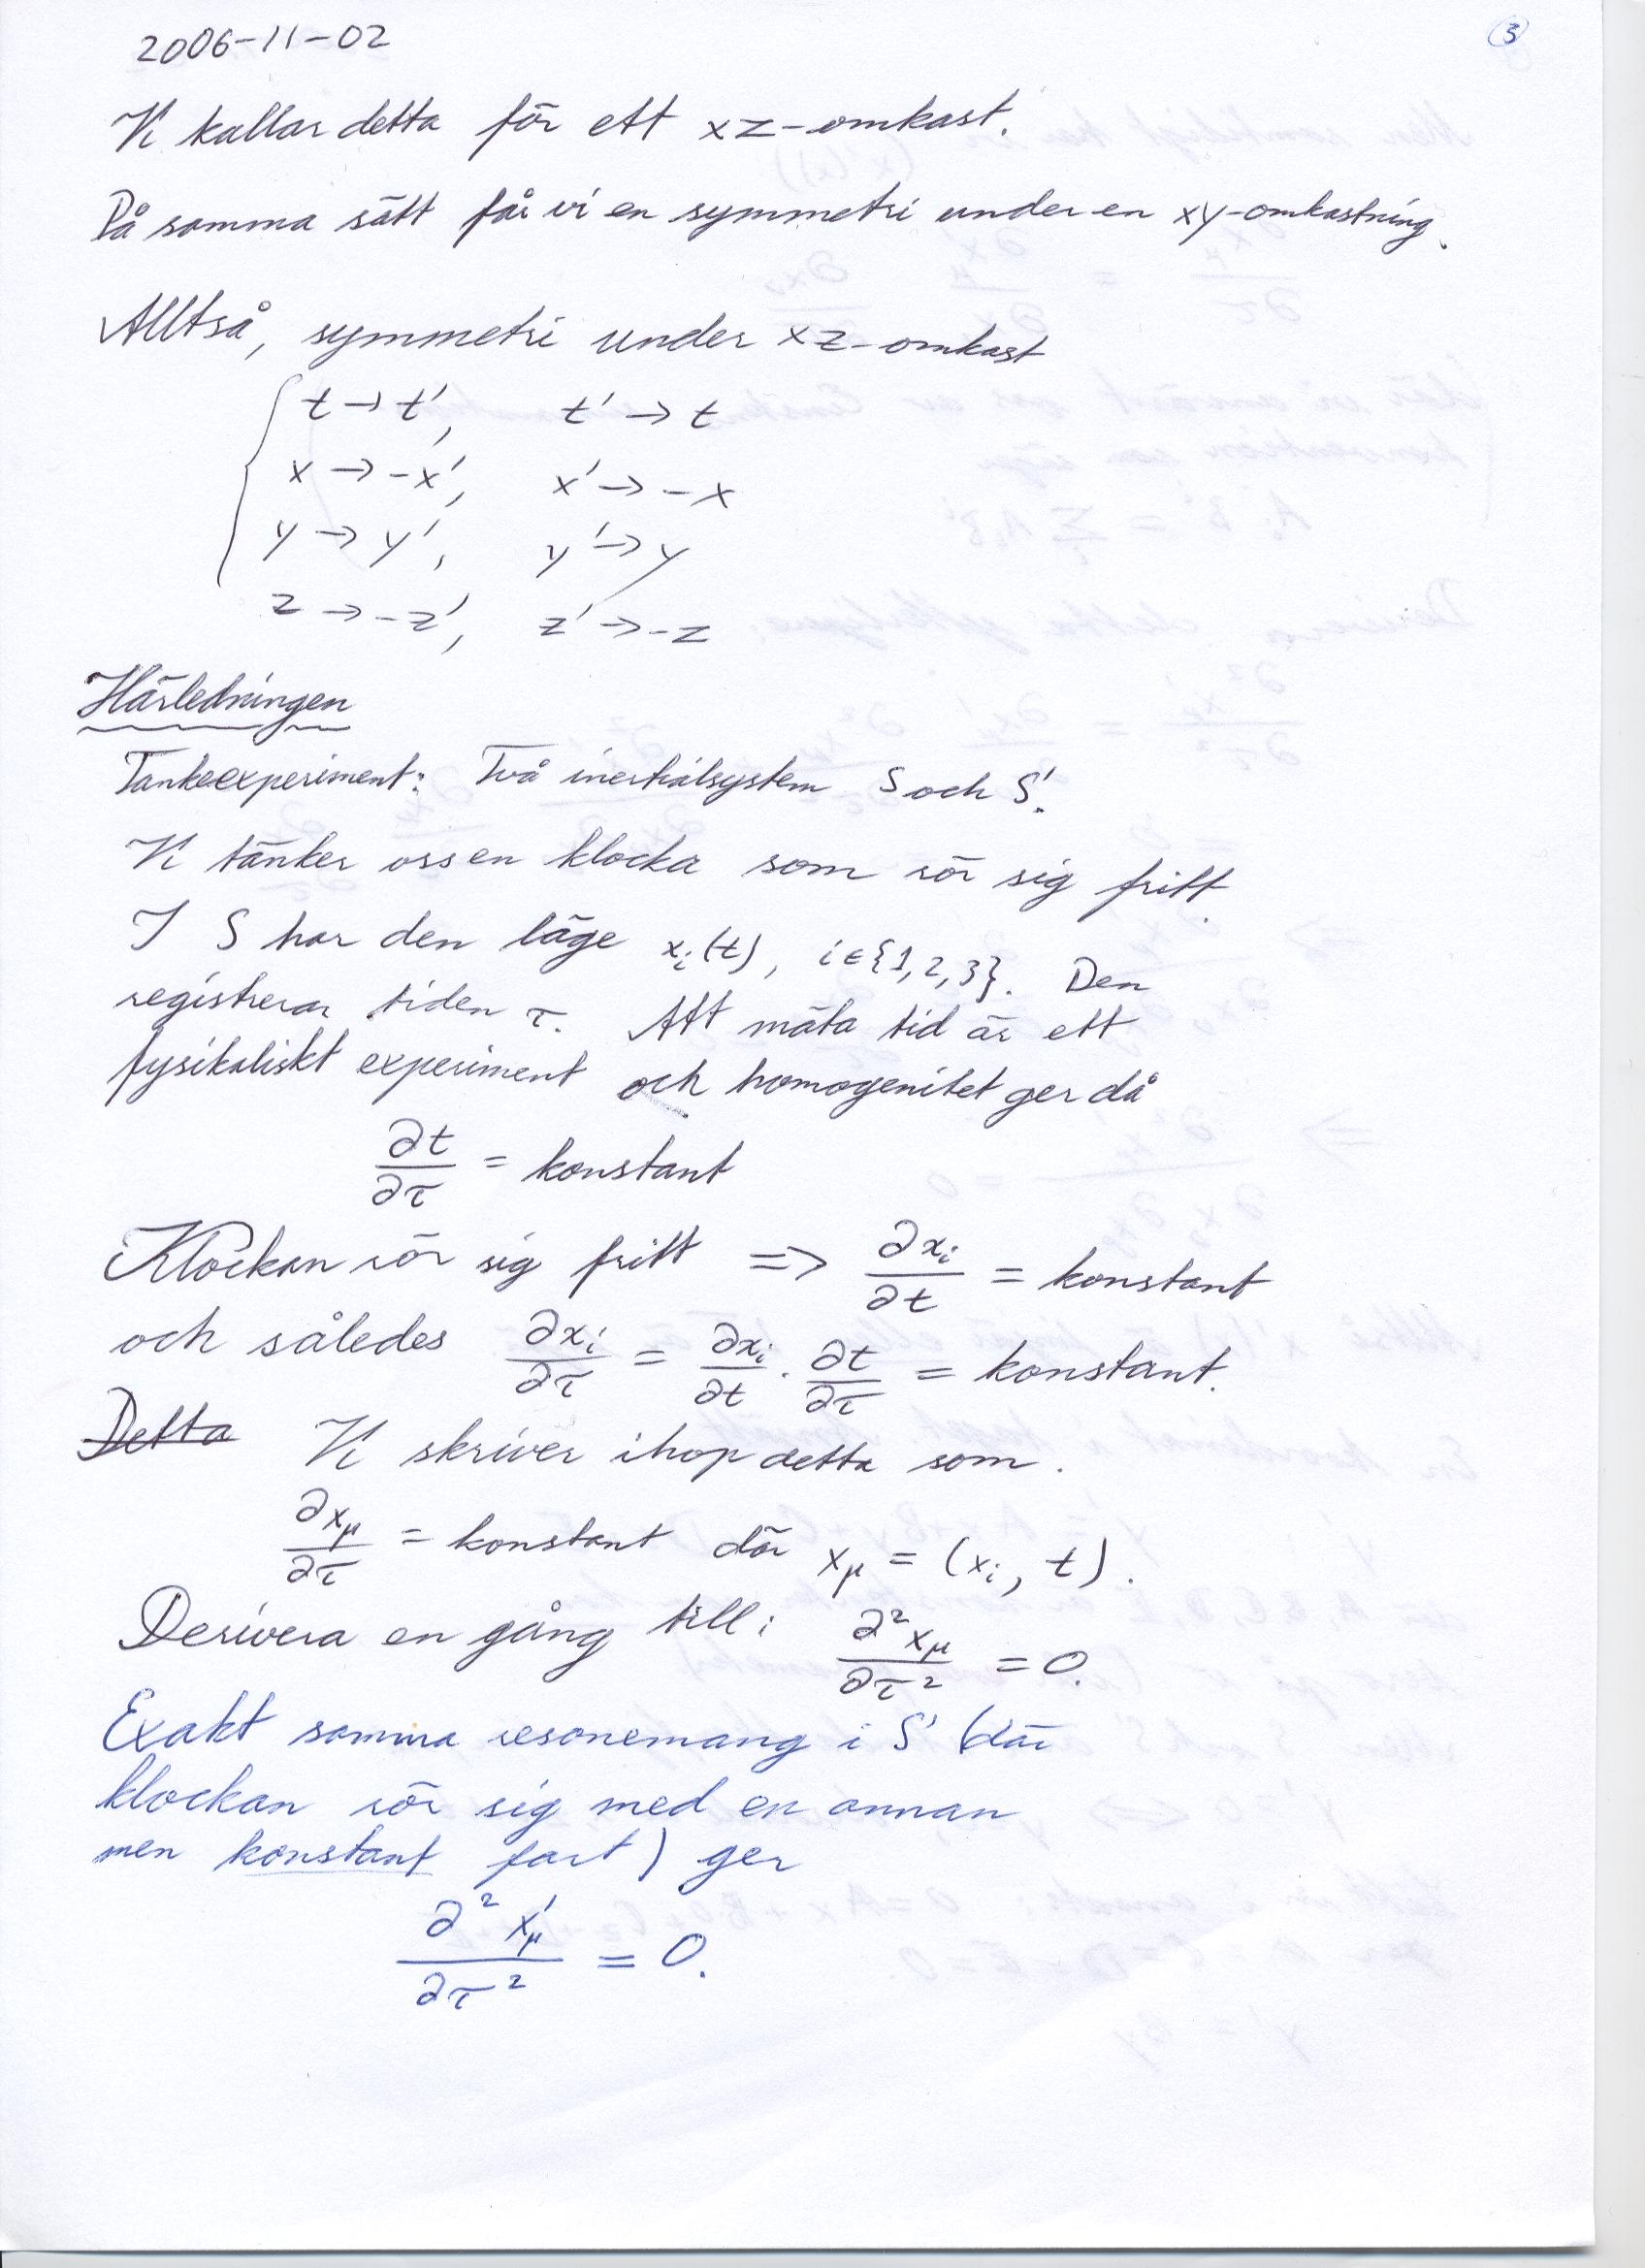 2006-11-02
3
Vi kallar detta för ett xz-omkast.
På samma sätt får vi en symmetri under en xy-omkastning.
Alltså, symmetri under xz-omkast
t → t', t' → t
x → -x', x' → -x
y → y', y' → y
z → -z', z' → -z
Härledningen
Tankeexperiment: Två inertialsystem S och S'.
Vi tänker oss en klocka som rör sig fritt.
I S har den läge x_i(t), i∈{1,2,3}. Den
registrerar tiden τ. Att mäta tid är ett
fysikaliskt experiment och homogenitet ger då
∂t/∂τ = konstant
Klockan rör sig fritt => ∂x_i/∂t = konstant
och således ∂x_i/∂τ = ∂x_i/∂t · ∂t/∂τ = konstant.
Detta Vi skriver ihop detta som.
∂x_μ/∂τ = konstant där x_μ = (x_i, t).
Derivera en gång till: ∂²x_μ/∂τ² = 0.
Exakt samma resonemang i S' (där
klockan rör sig med en annan
men konstant fart) ger
∂²x'_μ/∂τ² = 0.